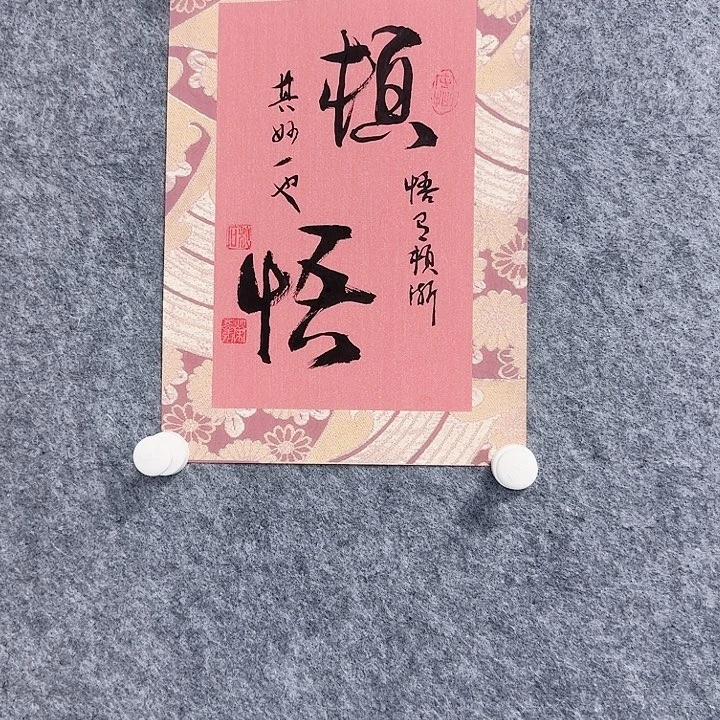 頓
悟
悟有頓漸
其妙一也